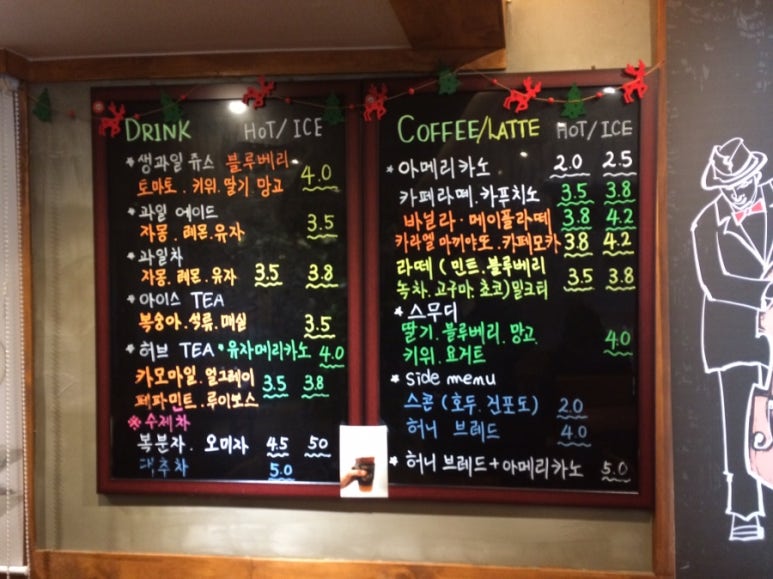 DRINK HOT/ICE
* 생과일 쥬스 블루베리
토마토.키위.딸기.망고 4.0
* 과일 에이드
자몽.레몬.유자 3.5
* 과일차
자몽.레몬.유자 3.5 3.8
* 아이스 TEA
복숭아.석류.매실 3.5
* 허브 TEA •유자메리카노 4.0
카모마일.얼그레이
페파민트.루이보스 3.5 3.8
※수제차
복분자. 오미자 4.5 50
대추차 5.0
COFFEE/LATTE HOT/ICE
* 아메리카노 2.0 2.5
카페라떼.카푸치노 3.5 3.8
바닐라.메이플라떼 3.8 4.2
카라멜 마끼야또.카페모카 3.8 4.2
라떼 (민트.블루베리
녹차.고구마.초코)밀크티 3.5 3.8
* 스무디
딸기.블루베리.망고.
키위.요거트 4.0
* side memu
스콘 (호두.건포도) 2.0
허니 브레드 4.0
* 허니 브레드+아메리카노 5.0